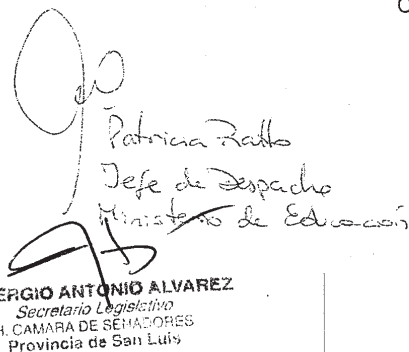 Patricia Ratto
Jefe de Despacho
Ministerio de Educación
ERGIO ANTONIO ALVAREZ
Secretario Legislativo
H. CAMARA DE SENADORES
Provincia de San Luis